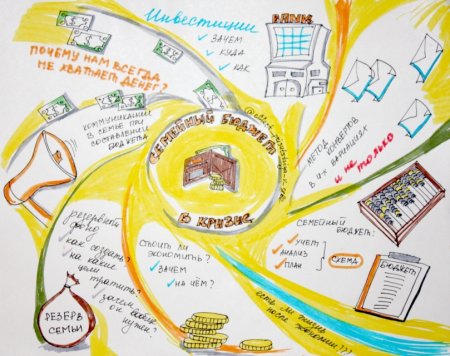 Инвестиции
зачем
куда
как
БАНК
ПОЧЕМУ НАМ ВСЕГДА
НЕ ХВАТАЕТ ДЕНЕГ?
КОММУНИКАЦИИ
В СЕМЬЕ ПРИ
СОСТАВЛЕНИИ
БЮДЖЕТА
СЕМЕЙНЫЙ БЮДЖЕТ
В КРИЗИС
МЕТОД
КОНВЕРТОВ
В 11-х ВАРИАЦИЯХ
и не только
СЕМЕЙНЫЙ
БЮДЖЕТ:
УЧЕТ
АНАЛИЗ
ПЛАН
СХЕМА
БЮДЖЕТ
резервный
фонд
как создать?
на какие
цели
тратить?
зачем
он вообще
нужен?
РЕЗЕРВ
СЕМЬИ
СТОИТ ЛИ
ЭКОНОМИТЬ?
ЗАЧЕМ
НА ЧЁМ?
есть ли жизнь
после экономии???